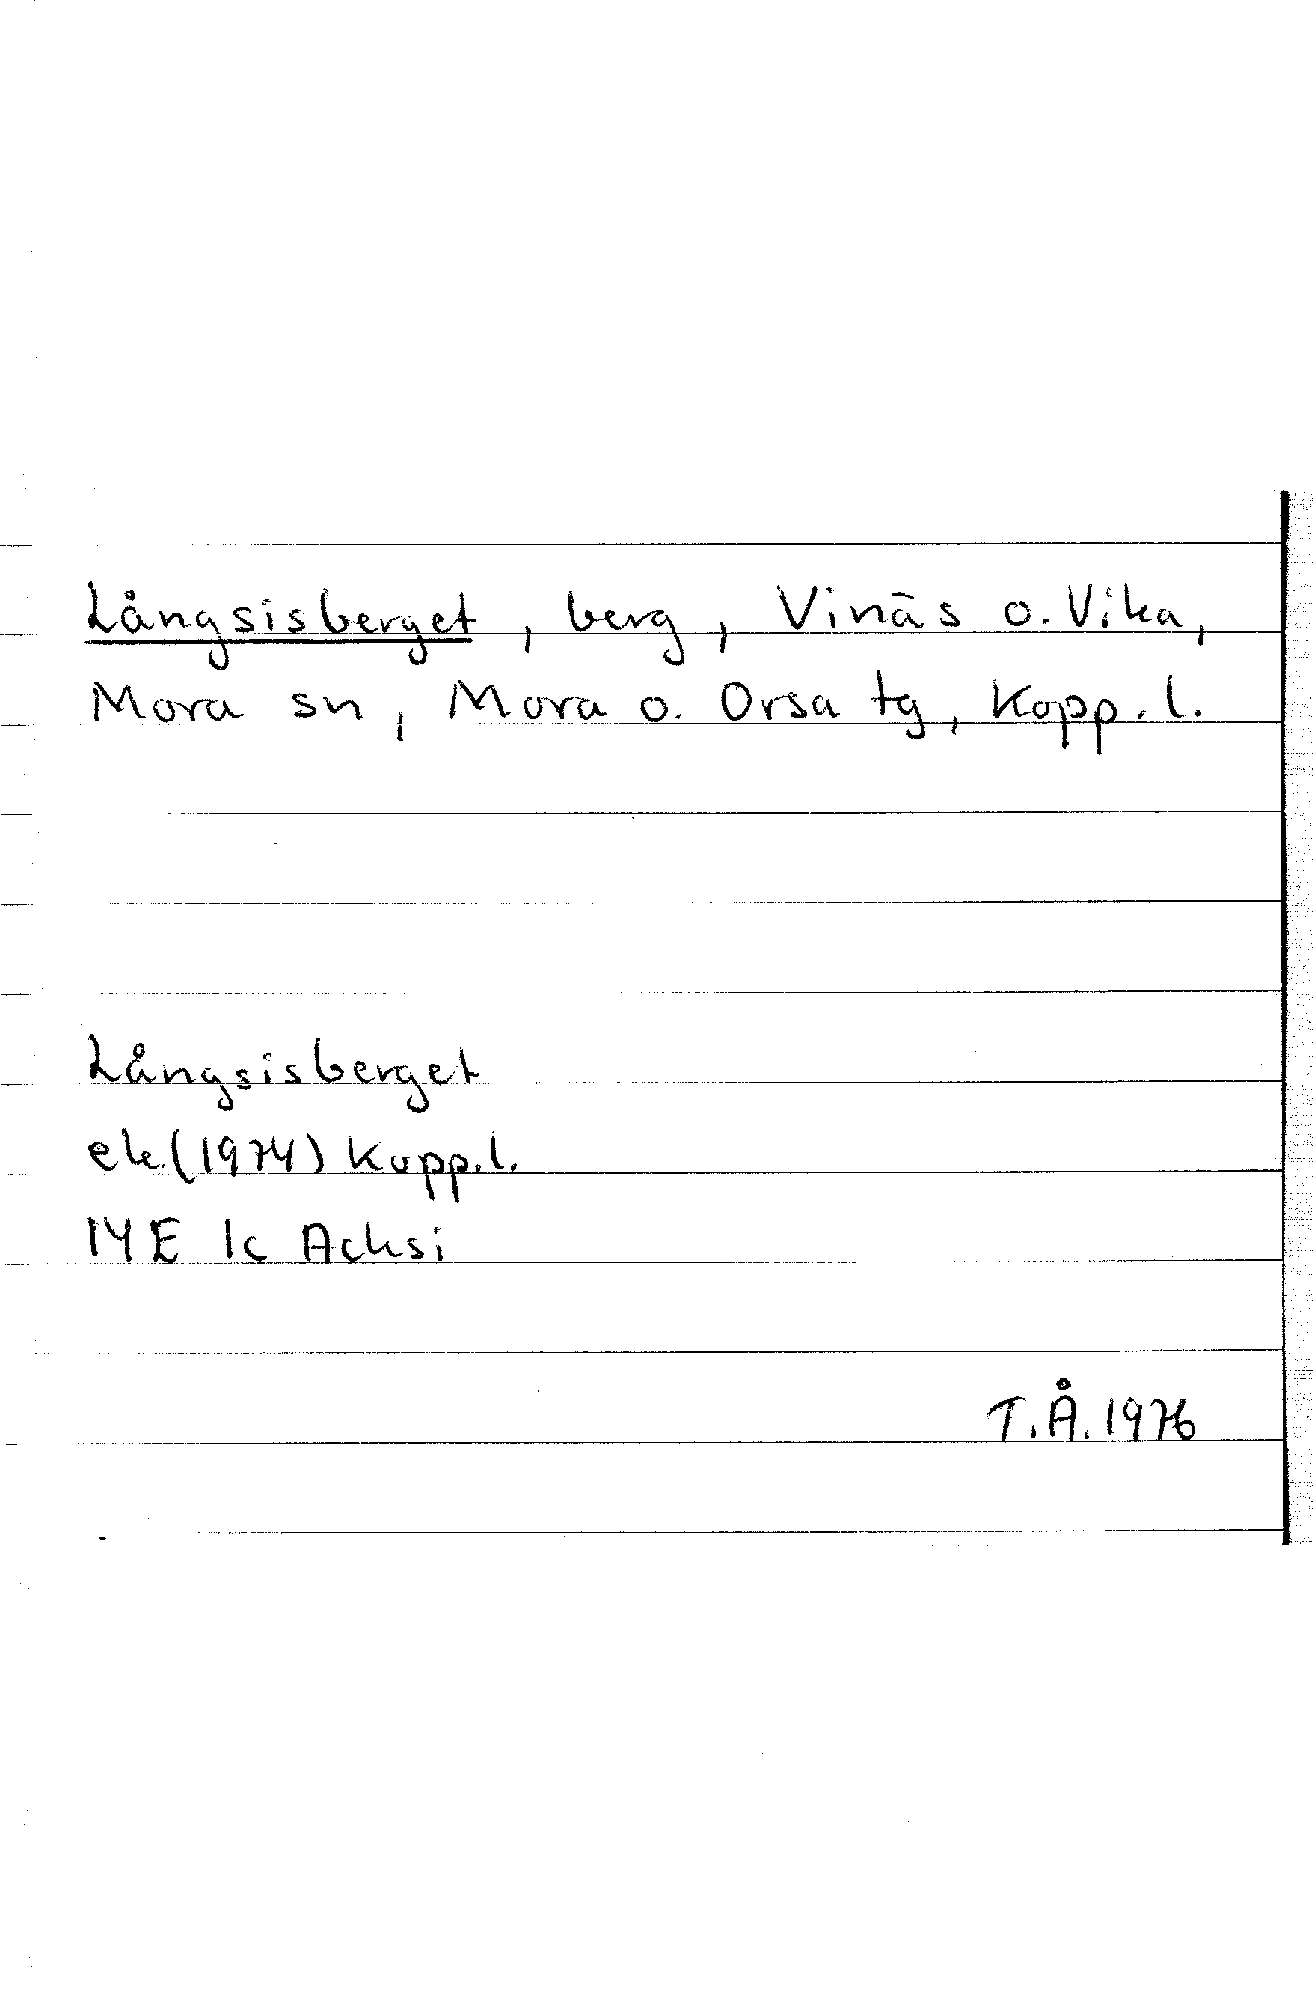 Långsisberget, berg, Vinäs o. Vika,
Mora sn, Mora o. Orsa tg, Kopp. l.
Långsisberget
ek. (1974) Kopp. l.
14E 1c Acksi
T.Å. 1976